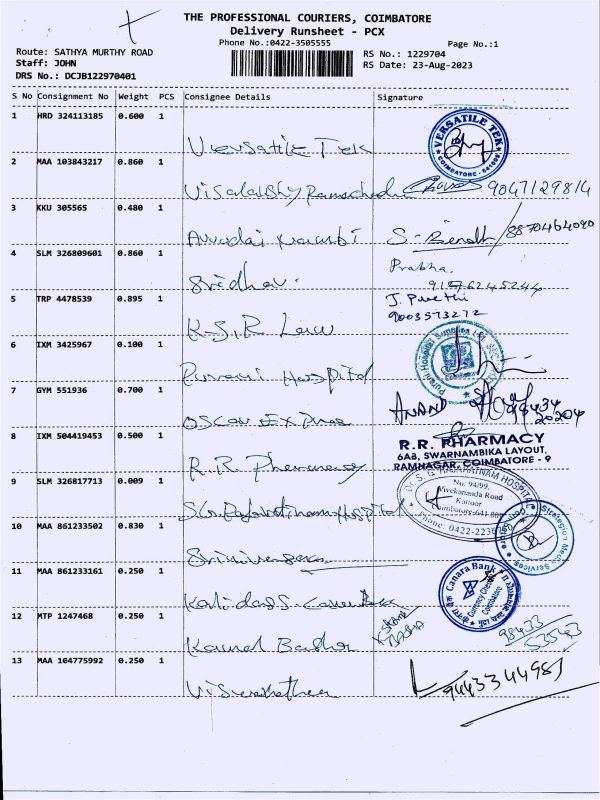 THE PROFESSIONAL COURIERS, COIMBATORE
Delivery Runsheet - PCX
Phone No.:0422-3505555
Page No.:1
Route: SATHYA MURTHY ROAD
Staff: JOHN
DRS No.: DCJB122970401
RS No.: 1229704
RS Date: 23-Aug-2023
S No Consignment No Weight PCS Consignee Details Signature
1 HRD 324113185 0.600 1
Versatile Tek
VERSATILE TEK
COIMBATORE - 641009
2 MAA 103843217 0.860 1
9047129814
3 KKU 305565 0.480 1
S- 8870464090
4 SLM 326809601 0.860 1
Sridhar
Prabha.
9176245244
5 TRP 4478539 0.895 1
K.S.R Law
J. Preethi
9003573272
6 IXM 3425967 0.100 1
Purani Hospital
7 GYM 551936 0.700 1
Oscar Express
ANAND
8 IXM 504419453 0.500 1
R.R. Pharmacy
R.R. PHARMACY
6AB, SWARNAMBIKA LAYOUT,
RAMNAGAR, COIMBATORE - 9
9 SLM 326817713 0.009 1
Hospital
No: 94/99,
Vivekananda Road
Kattoor
Coimbatore-641 009
Phone: 0422-223
10 MAA 861233502 0.830 1
Srinivasan
11 MAA 861233161 0.250 1
Kalidass.
Canara Bank
Currency Chest
Coimbatore
12 MTP 1247468 0.250 1
Kamal Basha
98433
53543
13 MAA 104775992 0.250 1
9443344981